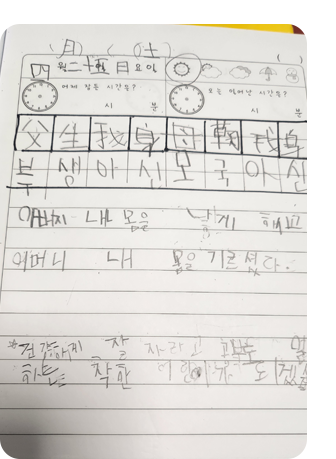 (月) (土)
四 월 二十五 日 요일
어제 잠든 시간은? 오늘 일어난 시간은?
시 분 시 분
父 生 我 身 母 鞠 我 身
부 생 아 신 모 국 아 신
아버지 내 몸을 낳게 하고
어머니 내 몸을 기르셨다.
*건강하게 잘 자라고 공부도
하는 착한 어린이가 되겠